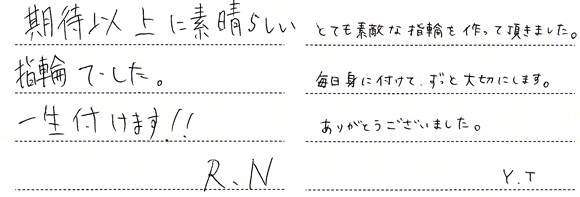 期待以上に素晴らしい
指輪でした。
一生付けます!!
R、N
とても素敵な指輪を作って頂きました。
毎日身に付けて、ずっと大切にします。
ありがとうございました。
Y.T